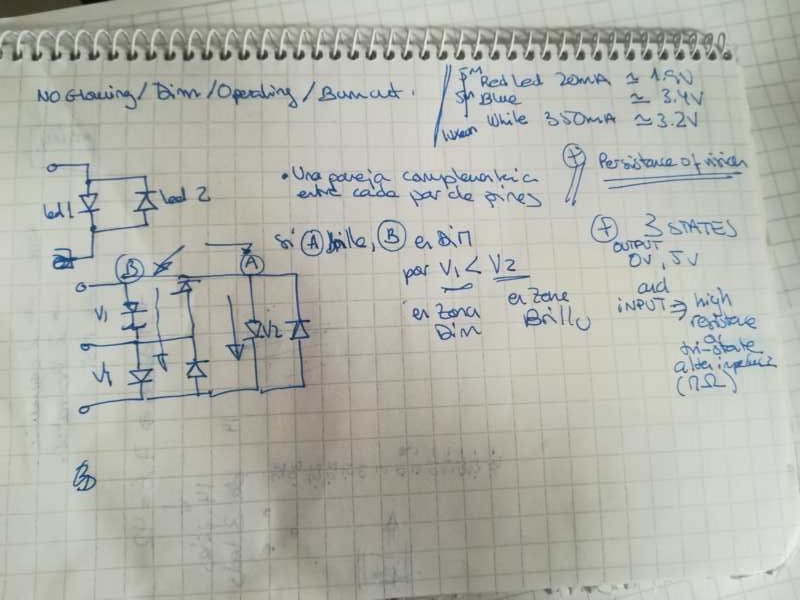 NO Glowing / Dim / Operating / Burnout.
5m Red Led 20mA ≃ 1.9V
5m Blue ≃ 3.4V
Luxeon White 350mA ≃ 3.2V
+ Persistance of vision
• Una pareja complementaria
entre cada par de pines
led 1
led 2
Si A brilla, B en Dim
por V1 < V2
en zona
Dim
en zona
Brillo
+ 3 STATES
OUTPUT
0V, 5V
and
INPUT ⇒ high
resistance
or
tri-state
alta impedancia
(MΩ)
B
A
V1
V2
V1